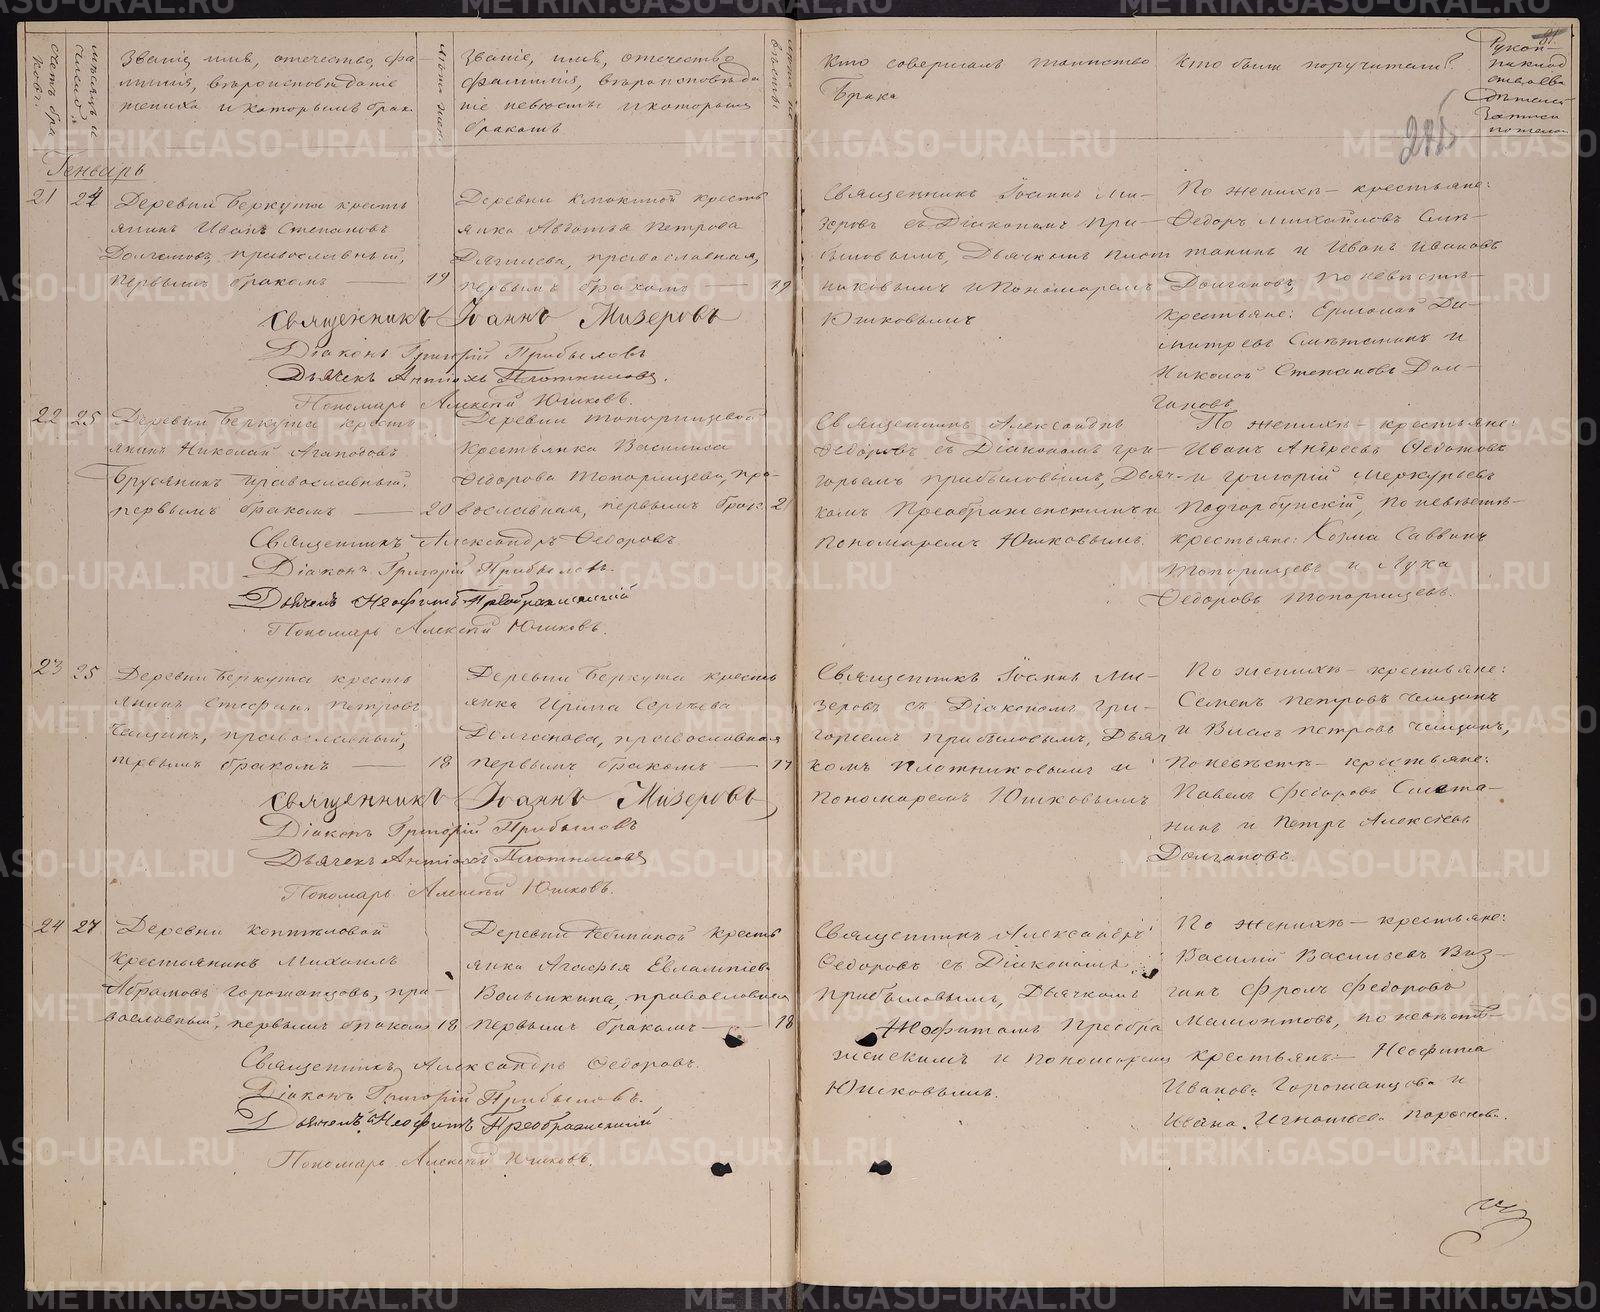 счетъ бра
ковъ.
мѣсяцъ и
число.
Званіе, имя, отечество, фа-
милія, вѣроисповѣданіе
жениха и которымъ брак.
Званіе, имя, отечество
фамилія, вѣроисповѣда
ніе невѣсты и которымъ
бракомъ
Кто совершалъ таинство
Брака
Кто были поручители?
Генварь
21 24
Деревни Беркута кресть
янинъ Иванъ Степановъ
Долгановъ, православный,
первымъ бракомъ — 19
Деревни Клюкиной кресть
янка Авдотья Петрова
Дягилева, православная,
первымъ бракомъ — 19
Священникъ Іоаннъ Ми-
зеровъ съ Діакономъ При-
быловымъ, Дьячкомъ Плот
никовымъ и Пономаремъ
Юшковымъ
По женихѣ — крестьяне:
Федоръ Михайловъ Смѣ-
танинъ и Иванъ Ивановъ
Долгановъ, по невѣстѣ —
крестьяне: Ермолай Ди-
митревъ Смѣтанинъ и
Николай Степановъ Дол-
гановъ
Священникъ Іоаннъ Мизеровъ
Діаконъ Григорій Прибыловъ
Дьячекъ Антіохъ Плотниковъ.
Пономарь Алексѣй Юшковъ.
22 25
Деревни Беркута кресть
янинъ Николай Агаповъ
Брусянинъ православный,
первымъ бракомъ — 20
Деревни Топорищевой
крестьянка Василиса
Федорова Топорищева, пра-
вославная, первымъ брак. 21
Священникъ Александръ
Федоровъ съ Діакономъ Гри-
горьемъ Прибыловымъ, Дьяч-
комъ Преображенскимъ и
Пономаремъ Юшковымъ.
По женихѣ — крестьяне:
Иванъ Андреевъ Федотовъ
и Григорій Меркурьевъ
Подгорбунскій, по невѣстѣ —
крестьяне: Козма Саввинъ
Топорищевъ и Лука
Федоровъ Топорищевъ.
Священникъ Александръ Федоровъ.
Діаконъ Григорій Прибыловъ.
Дьячекъ Неофитъ Преображенскій
Пономарь Алексѣй Юшковъ.
23 25
Деревни Беркута кресть
янинъ Стефанъ Петровъ
Чащинъ, православный,
первымъ бракомъ — 18
Деревни Беркута кресть
янка Ирина Сергѣева
Долганова, православная
первымъ бракомъ — 17
Священникъ Іоаннъ Ми-
зеровъ съ Діакономъ Гри-
горьемъ Прибыловымъ, Дьяч
комъ Плотниковымъ и
Пономаремъ Юшковымъ
По женихѣ — крестьяне:
Семенъ Петровъ Чащинъ
и Власъ Петровъ Чащинъ,
По невѣстѣ — крестьяне:
Павелъ Федоровъ Смета-
нинъ и Петръ Алексѣевъ
Долгановъ.
Священникъ Іоаннъ Мизеровъ
Діаконъ Григорій Прибыловъ
Дьячекъ Антіохъ Плотниковъ
Пономарь Алексѣй Юшковъ.
24 27
Деревни Коптяловой
крестьянинъ Михаилъ
Абрамовъ Горожанцовъ, пра-
вославный, первымъ бракомъ 18
кресть
янка Агафья Евлампіева
Волынкина, православная
первымъ бракомъ — 18
Священникъ Александръ
Федоровъ съ Діакономъ
Прибыловымъ, Дьячкомъ
Неофитомъ Преобра
женскимъ и Пономаремъ
Юшковымъ.
По женихѣ — крестьяне:
Василій Васильевъ Виз-
гинъ Фролъ Федоровъ
Мамонтовъ, по невѣстѣ —
крестьянъ — Неофита
Иванова Горожанцова и
Ивана Игнатьева
Священникъ Александръ Федоровъ.
Діаконъ Григорій Прибыловъ.
Дьячекъ Неофитъ Преображенскій
Пономарь Алексѣй Юшковъ.
METRIKI.GASO-URAL.RU